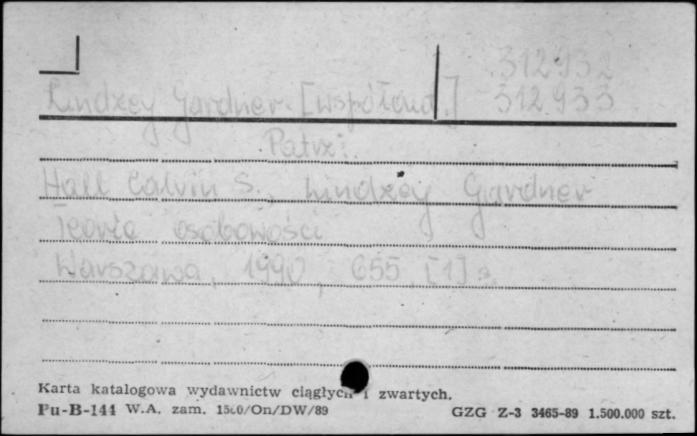 312932
Lindzey Gardner. [współaut.] 312933
Patrz:
Hall Calvin S., Lindzey Gardner
Teorie osobowości
Warszawa, 1990, 655, [1] s.
Karta katalogowa wydawnictw ciągłych i zwartych.
Pu-B-144 W.A. zam. /On/DW/89 GZG Z-3 3465-89 1.500.000 szt.